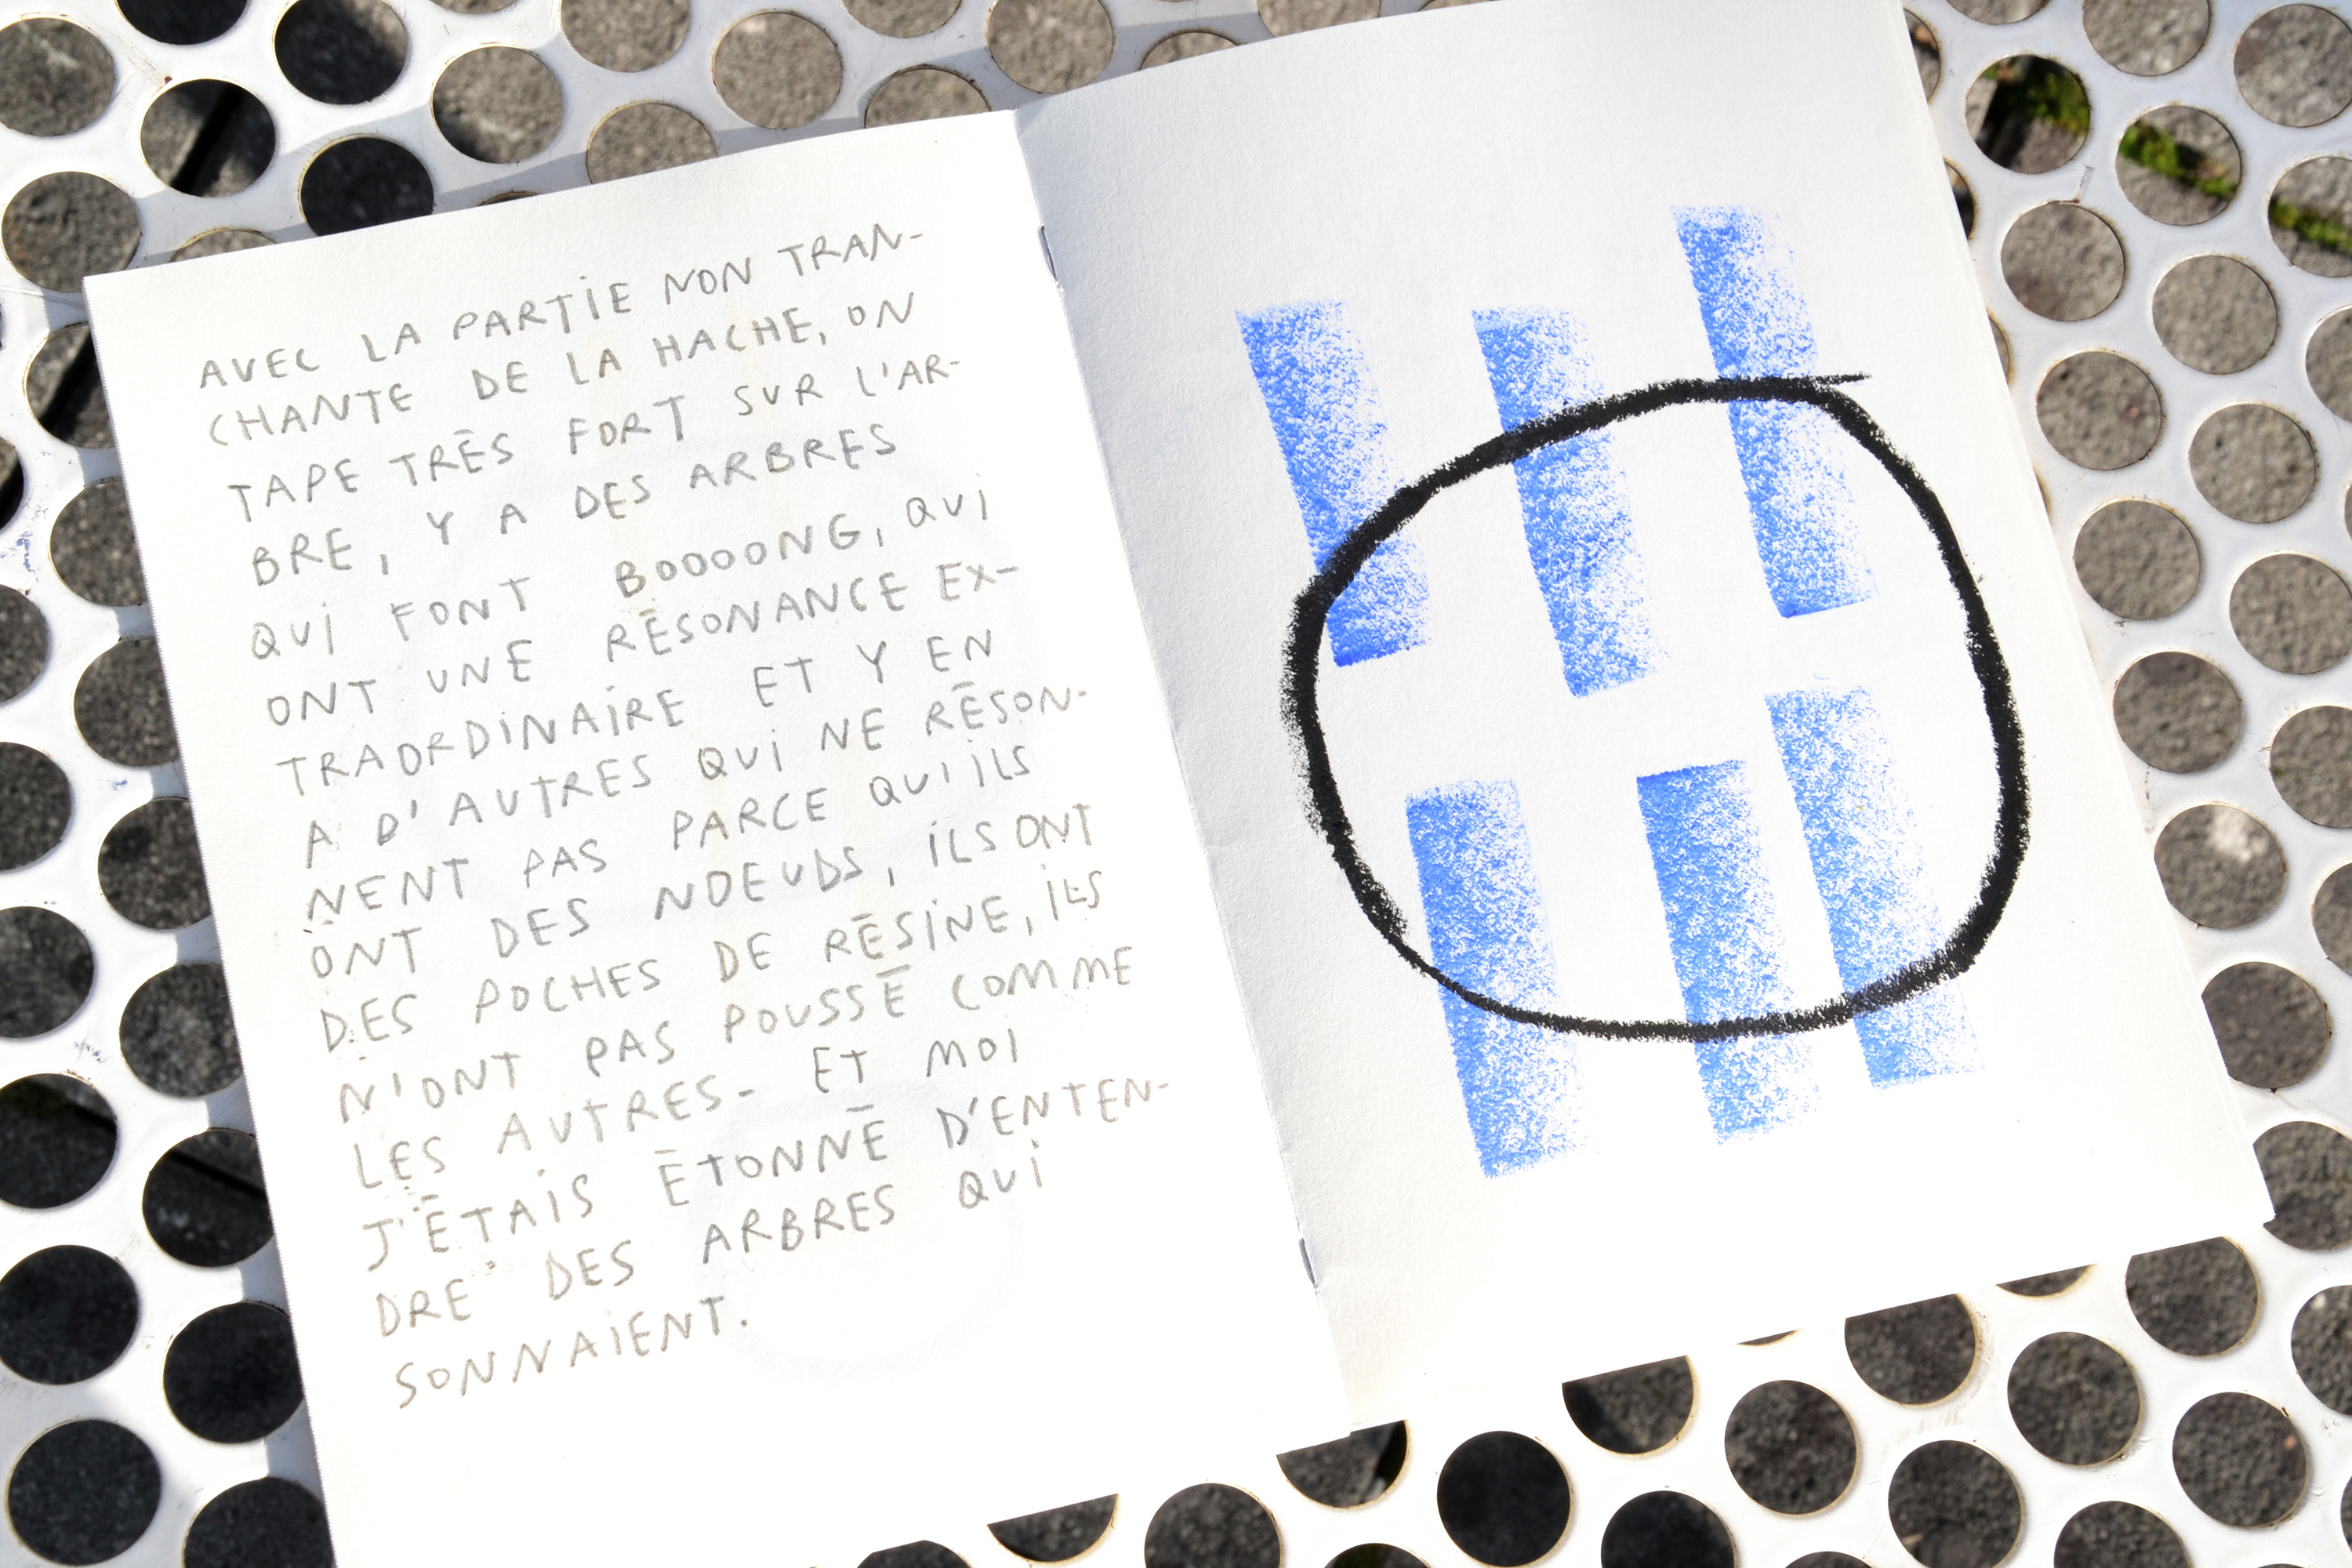 AVEC LA PARTIE NON TRAN-
CHANTE DE LA HACHE, ON
TAPE TRĒS FORT SUR L'AR-
BRE, Y A DES ARBRES
QUI FONT BOOOONG, QUI
ONT UNE RĒSONANCE EX-
TRAORDINAIRE ET Y EN
A D'AUTRES QUI NE RĒSON-
NENT PAS PARCE QU'ILS
ONT DES NOEUDS, ILS ONT
DES POCHES DE RĒSINE, ILS
N'ONT PAS POUSSĒ COMME
LES AUTRES- ET MOI
J'ĒTAIS ĒTONNĒ D'ENTEN-
DRE DES ARBRES QUI
SONNAIENT.